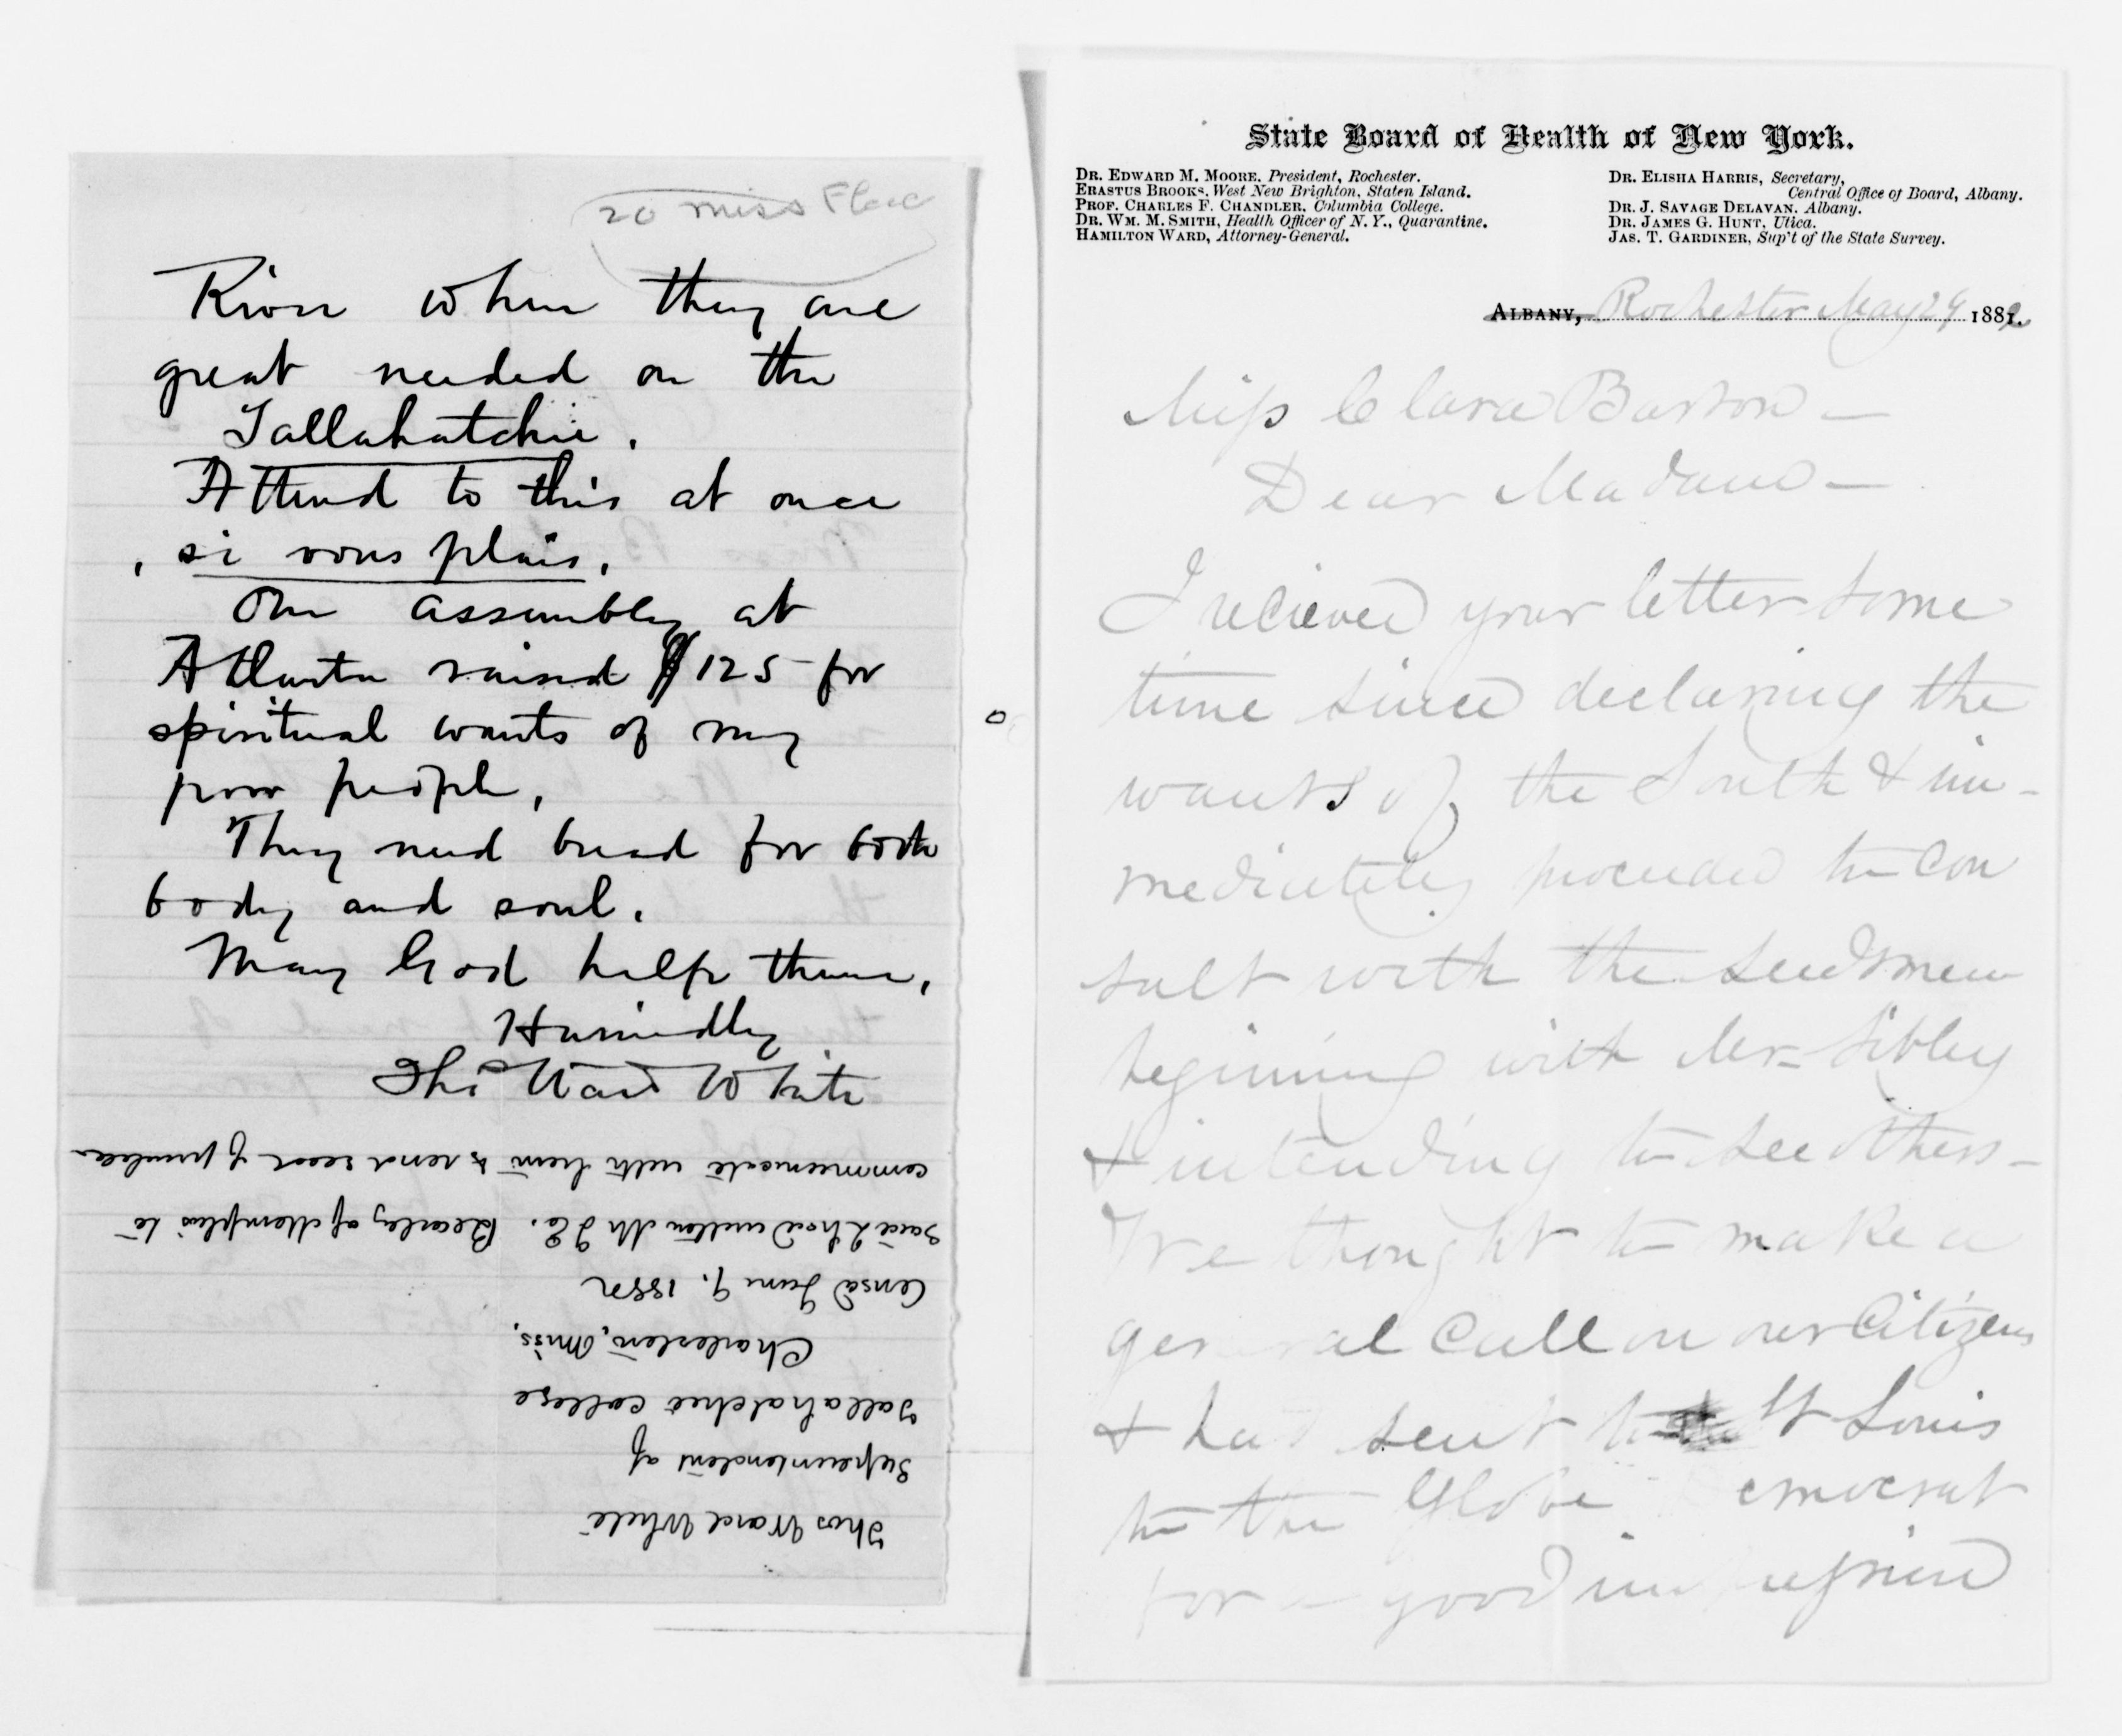 20 Miss Flood
River when they are
great needed on the
Tallahatchie.
Attend to this at once
, si vous plais,
Our assembly at
Atlanta raised $125 for
spiritual wants of my
poor people,
They need bread for both
body and soul.
May God help them,
Hurriedly
Tho Ward White
Thos Ward White
Superintendent of
Tallahatchie College
Charleston, Miss.
Ansd June 9. 1882
Said I had written Dr. Beverley of Memphis to
communicate with him & send seed if possible
State Board of Health of New York.
Dr. Edward M. Moore, President, Rochester.
Erastus Brooks, West New Brighton, Staten Island.
Prof. Charles F. Chandler, Columbia College.
Dr. Wm. M. Smith, Health Officer of N. Y., Quarantine.
Hamilton Ward, Attorney-General.
Dr. Elisha Harris, Secretary,
Central Office of Board, Albany.
Dr. J. Savage Delavan, Albany.
Dr. James G. Hunt, Utica.
Jas. T. Gardiner, Sup't of the State Survey.
Albany, Rochester May 29 1882
Miss Clara Barton —
Dear Madam —
I recieved your letter some
time since declaring the
wants of the South & im-
mediately proceeded to con
sult with the seedsmen
begining with Mr Sibley
& intending to see others —
We thought to make a
general call on our Citizens
& had sent to St Louis
to the Globe Democrat
for a good